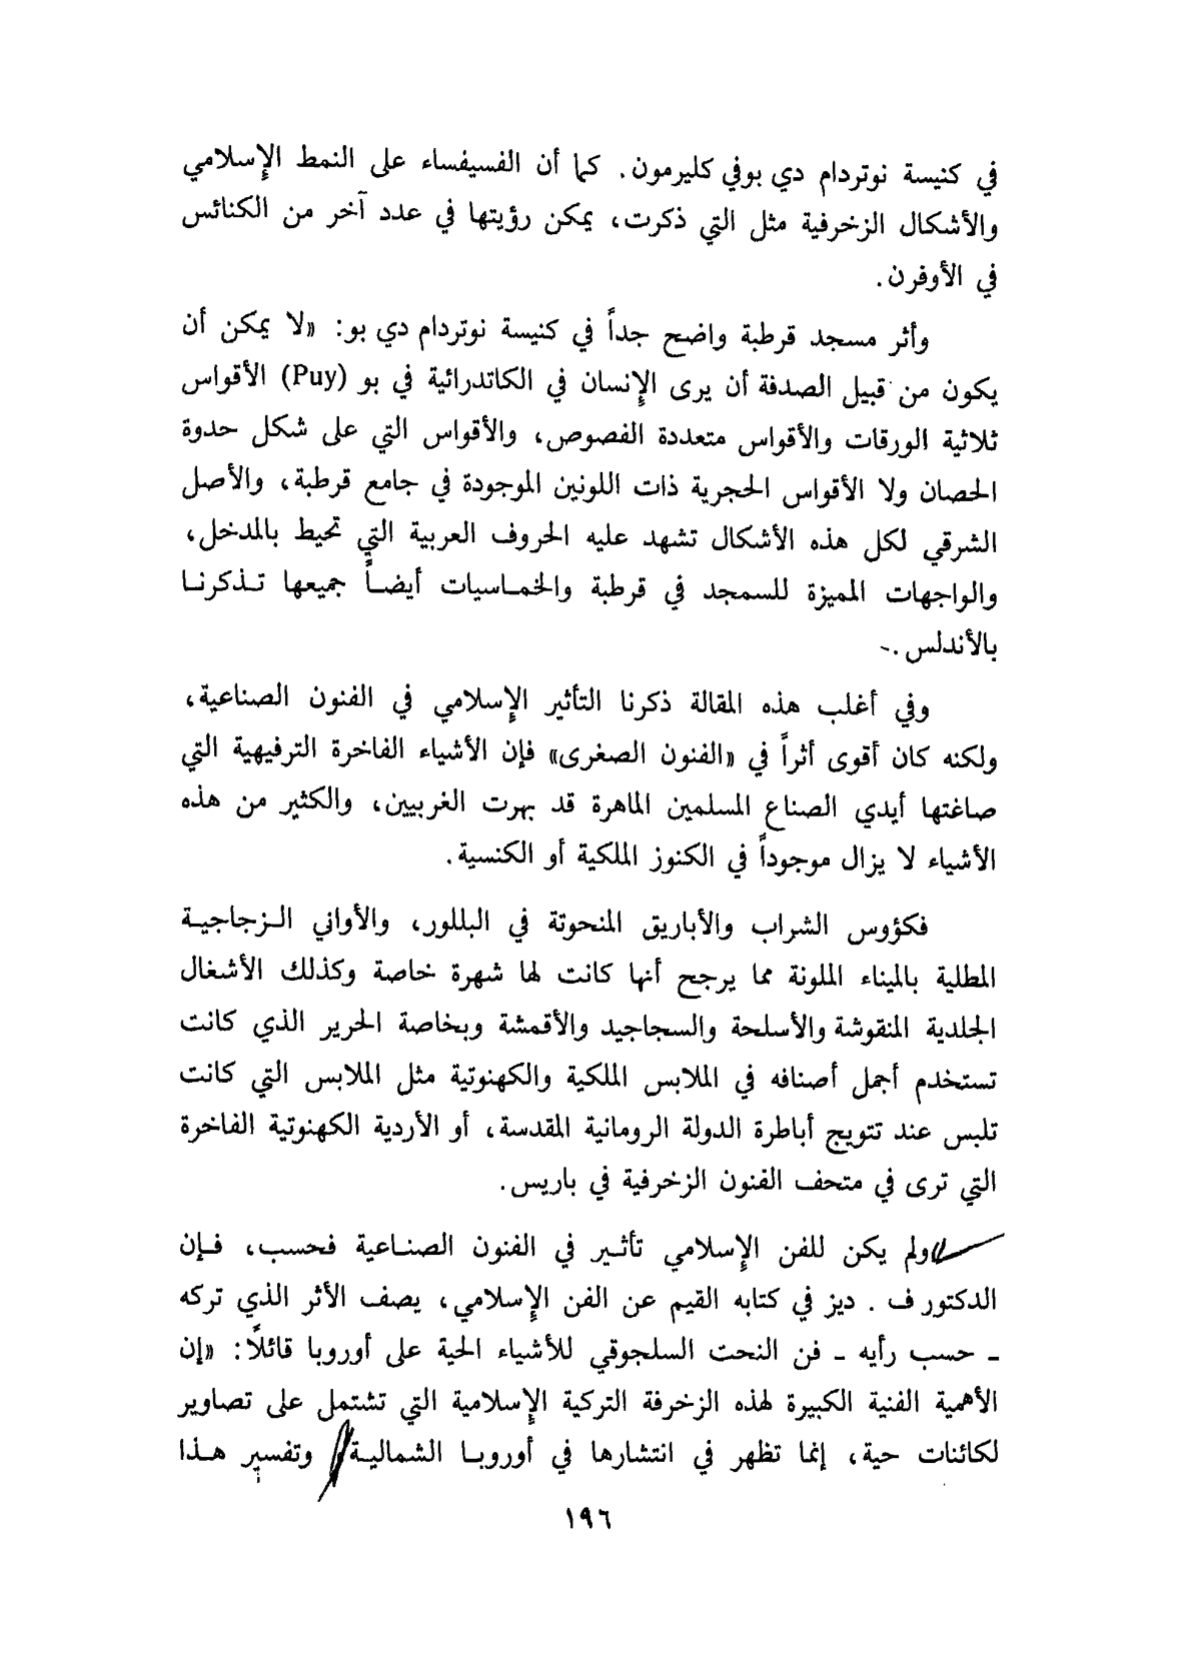 في كنيسة نوتردام دي بوفي كليرمون. كما أن الفسيفساء على النمط الإسلامي
والأشكال الزخرفية مثل التي ذكرت، يمكن رؤيتها في عدد آخر من الكنائس
في الأوفرن.
وأثر مسجد قرطبة واضح جداً في كنيسة نوتردام دي بو: «لا يمكن أن
يكون من قبيل الصدفة أن يرى الإنسان في الكاتدرائية في بو (Puy) الأقواس
ثلاثية الورقات والأقواس متعددة الفصوص، والأقواس التي على شكل حدوة
الحصان ولا الأقواس الحجرية ذات اللونين الموجودة في جامع قرطبة، والأصل
الشرقي لكل هذه الأشكال تشهد عليه الحروف العربية التي تحيط بالمدخل،
والواجهات المميزة للسمجد في قرطبة والخمـاسيات أيضـاً جميعها تـذكرنـا
بالأندلس.-
وفي أغلب هذه المقالة ذكرنا التأثير الإسلامي في الفنون الصناعية،
ولكنه كان أقوى أثراً في «الفنون الصغرى» فإن الأشياء الفاخرة الترفيهية التي
صاغتها أيدي الصناع المسلمين الماهرة قد بهرت الغربيين، والكثير من هذه
الأشياء لا يزال موجوداً في الكنوز الملكية أو الكنسية.
فكؤوس الشراب والأباريق المنحوتة في البللور، والأواني الـزجاجيـة
المطلية بالميناء الملونة مما يرجح أنها كانت لها شهرة خاصة وكذلك الأشغال
الجلدية المنقوشة والأسلحة والسجاجيد والأقمشة وبخاصة الحرير الذي كانت
تستخدم أجمل أصنافه في الملابس الملكية والكهنوتية مثل الملابس التي كانت
تلبس عند تتويج أباطرة الدولة الرومانية المقدسة، أو الأردية الكهنوتية الفاخرة
التي ترى في متحف الفنون الزخرفية في باريس.
ولم يكن للفن الإسلامي تأثـير في الفنون الصنـاعية فحسب، فـإن
الدكتور ف . ديز في كتابه القيم عن الفن الإسلامي، يصف الأثر الذي تركه
ـ حسب رأيه ـ فن النحت السلجوقي للأشياء الحية على أوروبا قائلاً: «إن
الأهمية الفنية الكبيرة لهذه الزخرفة التركية الإسلامية التي تشتمل على تصاوير
لكائنات حية، إنما تظهر في انتشارها في أوروبـا الشماليـة وتفسير هـذا
١٩٦